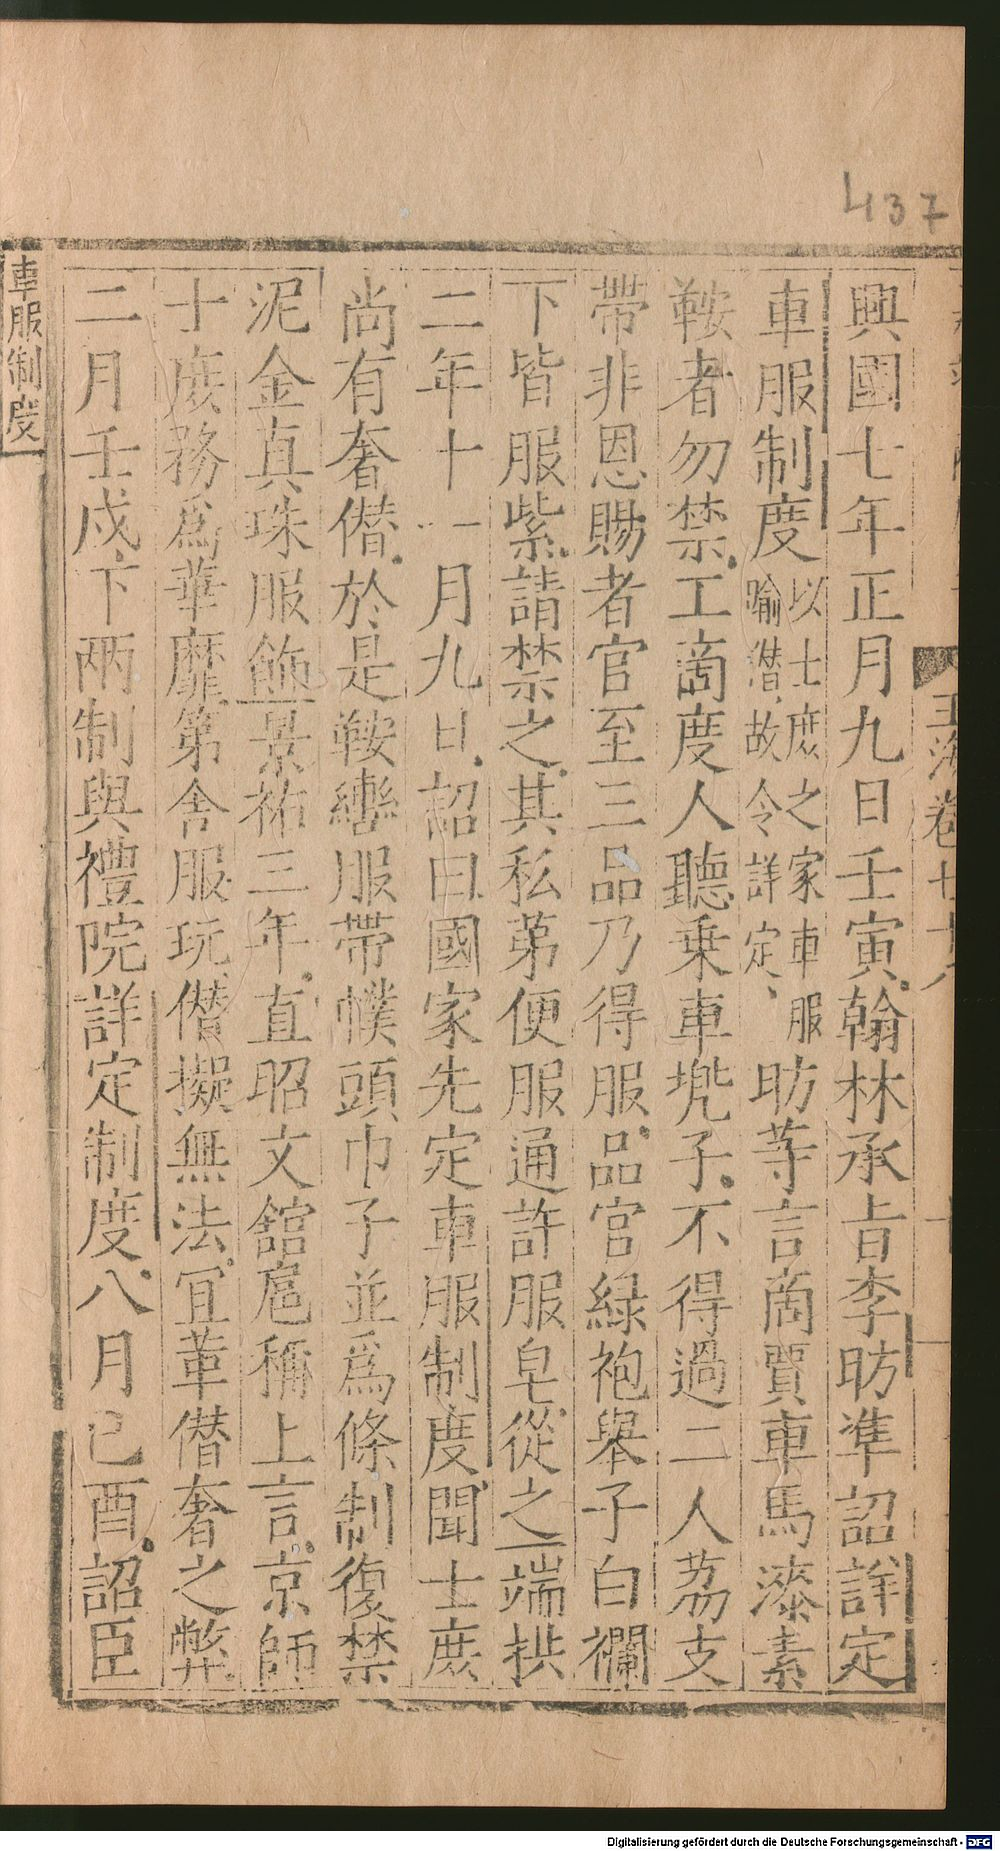 437
興國七年正月九日壬寅翰林承旨李昉準詔詳定
車服制度以士庶之家車服踰僭故令詳定昉等言啇賈車馬漆素
鞍者勿禁工啇度人聽乗車兠子不得過二人茘支
帶非恩賜者官至三品乃得服品官緑袍舉子白襴
下皆服紫請禁之其私第便服通許服皁從之端拱
二年十一月九日詔曰國家先定車服制度聞士庶
尚有奢僭於是鞍轡服帶幞頭巾子並爲條制復禁
泥金真珠服飾景祐三年直昭文館扈稱上言京師
士庶務爲華靡第舍服玩僭擬無法冝革僭奢之弊
二月壬戌下兩制與禮院詳定制度八月己酉詔臣
車服制度
玉海卷七十八
Digitalisierung gefördert durch die Deutsche Forschungsgemeinschaft - DFG